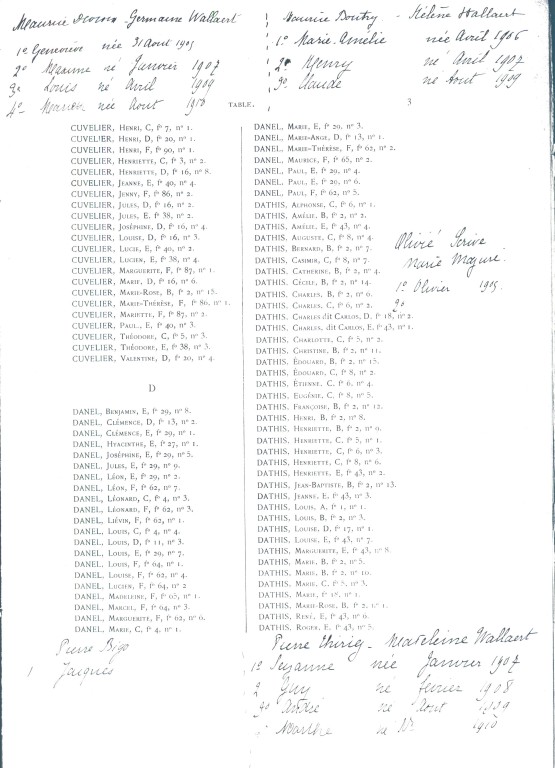 Maurice - Germaine Wallaert
1º Geneviève née 31 Aout 1905
2º né Janvier 1907
3º Louis né Avril 1909
4º née Aout 1910
Maurice Boutry - Hélène Wallaert
1º Marie-Amélie née Avril 1906
2º Henry né Avril 1907
3º Claude né Aout 1909
TABLE. 3
CUVELIER, Henri, C, fº 7, nº 1.
CUVELIER, Henri, D, fº 20, nº 1.
CUVELIER, Henri, F, fº 90, nº 1.
CUVELIER, Henriette, C, fº 3, nº 2.
CUVELIER, Henriette, D, fº 16, nº 8.
CUVELIER, Jeanne, E, fº 40, nº 4.
CUVELIER, Jenny, F, fº 86, nº 2.
CUVELIER, Jules, D, fº 16, nº 2.
CUVELIER, Jules, E, fº 38, nº 2.
CUVELIER, Joséphine, D, fº 16, nº 4.
CUVELIER, Louise, D, fº 16, nº 3.
CUVELIER, Lucie, E, fº 40, nº 2.
CUVELIER, Lucien, E, fº 38, nº 4.
CUVELIER, Marguerite, F, fº 87, nº 1.
CUVELIER, Marie, D, fº 16, nº 6.
CUVELIER, Marie-Rose, B, fº 2, nº 15.
CUVELIER, Marie-Thérèse, F, fº 86, nº 1.
CUVELIER, Mariette, F, fº 87, nº 2.
CUVELIER, Paul, E, fº 40, nº 3.
CUVELIER, Théodore, C, fº 5, nº 3.
CUVELIER, Théodore, E, fº 38, nº 3.
CUVELIER, Valentine, D, fº 20, nº 4.
D
DANEL, Benjamin, E, fº 29, nº 8.
DANEL, Clémence, D, fº 13, nº 2.
DANEL, Clémence, E, fº 29, nº 1.
DANEL, Hyacinthe, E, fº 27, nº 1.
DANEL, Joséphine, E, fº 29, nº 5.
DANEL, Jules, E, fº 29, nº 9.
DANEL, Léon, E, fº 29, nº 2.
DANEL, Léon, F, fº 62, nº 7.
DANEL, Léonard, C, fº 4, nº 3.
DANEL, Léonard, F, fº 62, nº 3.
DANEL, Liévin, F, fº 62, nº 1.
DANEL, Louis, C, fº 4, nº 4.
DANEL, Louis, D, fº 11, nº 3.
DANEL, Louis, E, fº 29, nº 7.
DANEL, Louis, F, fº 64, nº 1.
DANEL, Louise, F, fº 62, nº 4.
DANEL, Lucien, F, fº 64, nº 2
DANEL, Madeleine, F, fº 65, nº 1.
DANEL, Marcel, F, fº 64, nº 3.
DANEL, Marguerite, F, fº 62, nº 6.
DANEL, Marie, C, fº 4, nº 1.
DANEL, Marie, E, fº 29, nº 3.
DANEL, Marie-Ange, D, fº 13, nº 1.
DANEL, Marie-Thérèse, F, fº 62, nº 2.
DANEL, Maurice, F, fº 65, nº 2.
DANEL, Paul, E, fº 29, nº 4.
DANEL, Paul, E, fº 29, nº 6.
DANEL, Paul, F, fº 62, nº 5.
DATHIS, Alphonse, C, fº 6, nº 1.
DATHIS, Amélie, B, fº 2, nº 2.
DATHIS, Amélie, E, fº 43, nº 4.
DATHIS, Auguste, C, fº 8, nº 4.
DATHIS, Bernard, B, fº 2, nº 7.
DATHIS, Casimir, C, fº 8, nº 7.
DATHIS, Catherine, B, fº 2, nº 4.
DATHIS, Cécile, B, fº 2, nº 14.
DATHIS, Charles, B, fº 2, nº 6.
DATHIS, Charles, C, fº 6, nº 2.
DATHIS, Charles dit Carlos, D, fº 18, nº 2.
DATHIS, Charles, dit Carlos, E, fº 43, nº 1.
DATHIS, Charlotte, C, fº 5, nº 2.
DATHIS, Christine, B, fº 2, nº 11.
DATHIS, Édouard, B, fº 2, nº 15.
DATHIS, Édouard, C, fº 8, nº 2.
DATHIS, Étienne, C, fº 6, nº 4.
DATHIS, Eugénie, C, fº 8, nº 5.
DATHIS, Françoise, B, fº 2, nº 12.
DATHIS, Henri, B, fº 2, nº 8.
DATHIS, Henriette, B, fº 2, nº 9.
DATHIS, Henriette, C, fº 5, nº 1.
DATHIS, Henriette, C, fº 6, nº 3.
DATHIS, Henriette, C, fº 8, nº 6.
DATHIS, Henriette, E, fº 43, nº 2.
DATHIS, Jean-Baptiste, B, fº 2, nº 13.
DATHIS, Jeanne, E, fº 43, nº 3.
DATHIS, Louis, A, fº 1, nº 1.
DATHIS, Louis, B, fº 2, nº 3.
DATHIS, Louise, D, fº 17, nº 1.
DATHIS, Louise, E, fº 43, nº 7.
DATHIS, Marguerite, E, fº 43, nº 8.
DATHIS, Marie, B, fº 2, nº 5.
DATHIS, Marie, B, fº 2, nº 10.
DATHIS, Marie, C, fº 8, nº 3.
DATHIS, Marie, fº 18, nº 1.
DATHIS, Marie-Rose, B, fº 2, nº 1.
DATHIS, René, E, fº 43, nº 6.
DATHIS, Roger, E, fº 43, nº 5.
Olivié Scrive
Marie Maquré.
1º Olivier 1905.
2º
Pierre Bigo
1 Jacques
Pierre Thiriez - Madeleine Wallaert
1º Suzanne née Janvier 1907
2 Guy né fevrier 1908
3º André né Aout 1909
Marthe 1910